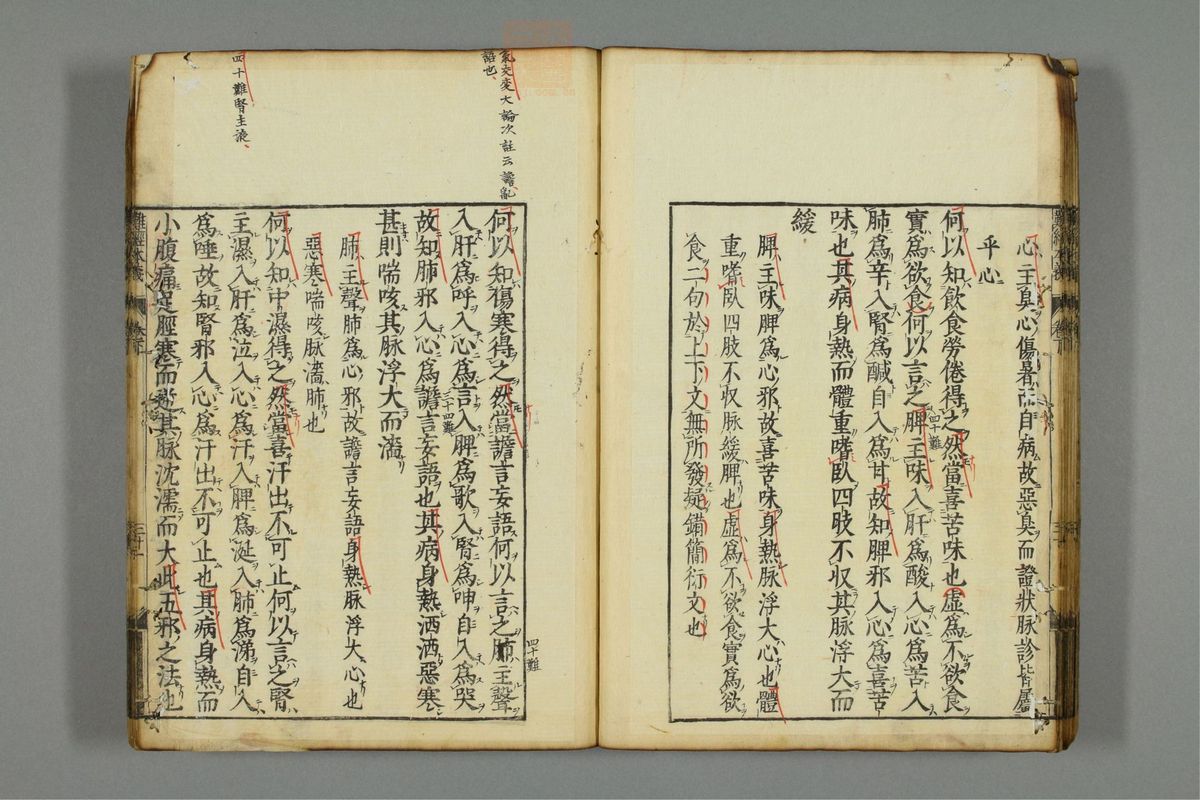 心主臭心傷暑而自病故惡臭而證狀脉診皆屬
乎心
何以知飲食勞倦得之然當喜苦味也虛爲不欲食
實爲欲食何以言之脾主味入肝爲酸入心爲苦入
肺爲辛入腎爲鹹自入爲甘故知脾邪入心爲喜苦
味也其病身熱而體重嗜臥四肢不収其脉浮大而
緩
脾主味脾爲心邪故喜苦味身熱脉浮大心也體
重嗜臥四肢不収脉緩脾也虛爲不欲食實爲欲
食二句於上下文無所發疑錯簡衍文也
四十難
氣交変大論次註云譫乱
語也
何以知傷寒得之然當譫言妄語何以言之肺主聲
入肝爲呼入心爲言入脾爲歌入腎爲呻自入爲哭
故知肺邪入心爲譫言妄語也其病身熱洒洒惡寒
甚則喘咳其脉浮大而濇
肺主聲肺爲心邪故譫言妄語身熱脉浮大心也
惡寒喘咳脉濇肺也
何以知中濕得之然當喜汗出不可止何以言之腎
主濕入肝爲泣入心爲汗入脾爲涎入肺爲涕自入
爲唾故知腎邪入心爲汗出不可止也其病身熱而
小腹痛足脛寒而逆其脉沈濡而大此五邪之法也
四十難
三十四難
四十難腎主液